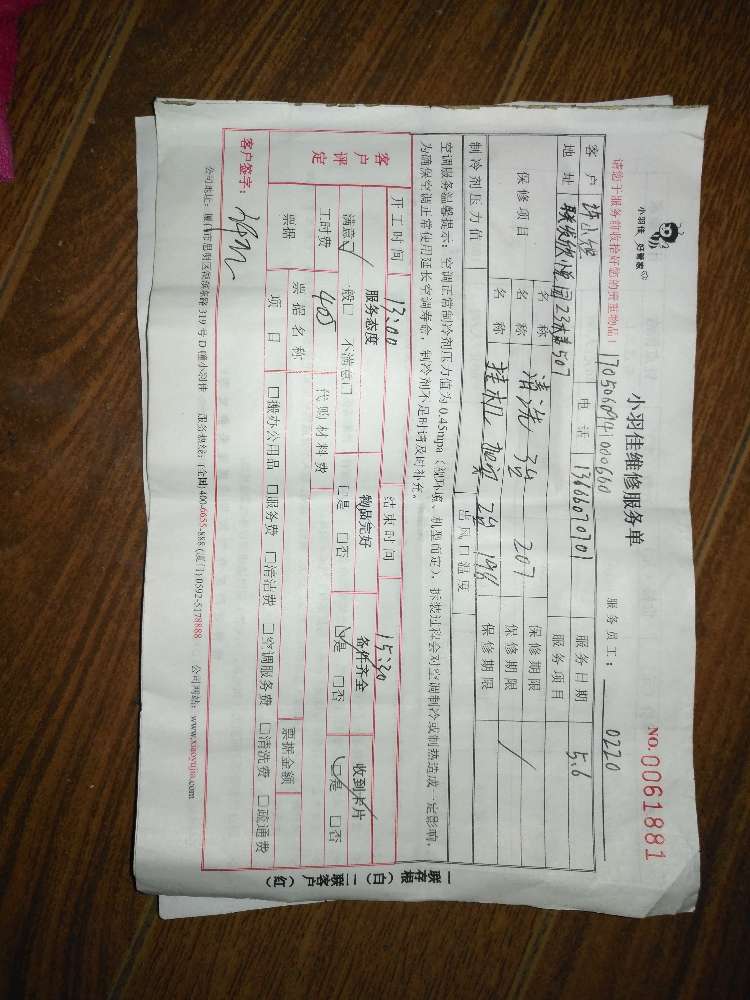 小羽佳 好管家
小羽佳维修服务单
NO.0061881
170506094100660
服务员工: 0220
请您于服务前收拾好您的贵重物品!
客户 许小姐 电话 13666070701 服务日期 5.6
地址 联发欣悦园23 507 服务项目
保修项目 名称 清洗 3台 207 保修期限
名称 挂机 加氟 2台 198 保修期限 /
制冷剂压力值 出风口温度
空调服务温馨提示:空调正常制冷剂压力值为0.45mpa(视环境、机型而定),拆装过程会对空调制冷或制热造成一定影响,
为确保空调正常使用延长空调寿命,制冷剂不足时请及时补充。
开工时间 13:00 结束时间 15:30
客户评定 服务态度 物品完好 备件齐全 收到卡片
满意☑ 一般□ 不满意□ □是 □否 ☑是 □否 ☑是 □否
工时费 405 代购材料费
票据 票据名称 票据金额
项目 □搬办公用品 □服务费 □清洁费 □空调服务费 □清洗费 □疏通费
客户签字:
319号D幢小羽佳 服务热线:(全国)400-6655-888 (厦门)0592-5178888 公司网站:www.xiaoyujia.com
一联存根(白) 二联客户(红)